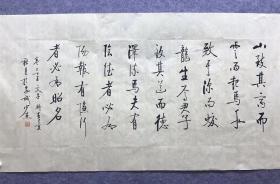 山致其高而
雲雨起焉水
致其深而蛟
龍生焉君子
致其道而德
澤流焉夫有
陰德者必有
陽報有隱行
者必有昭名